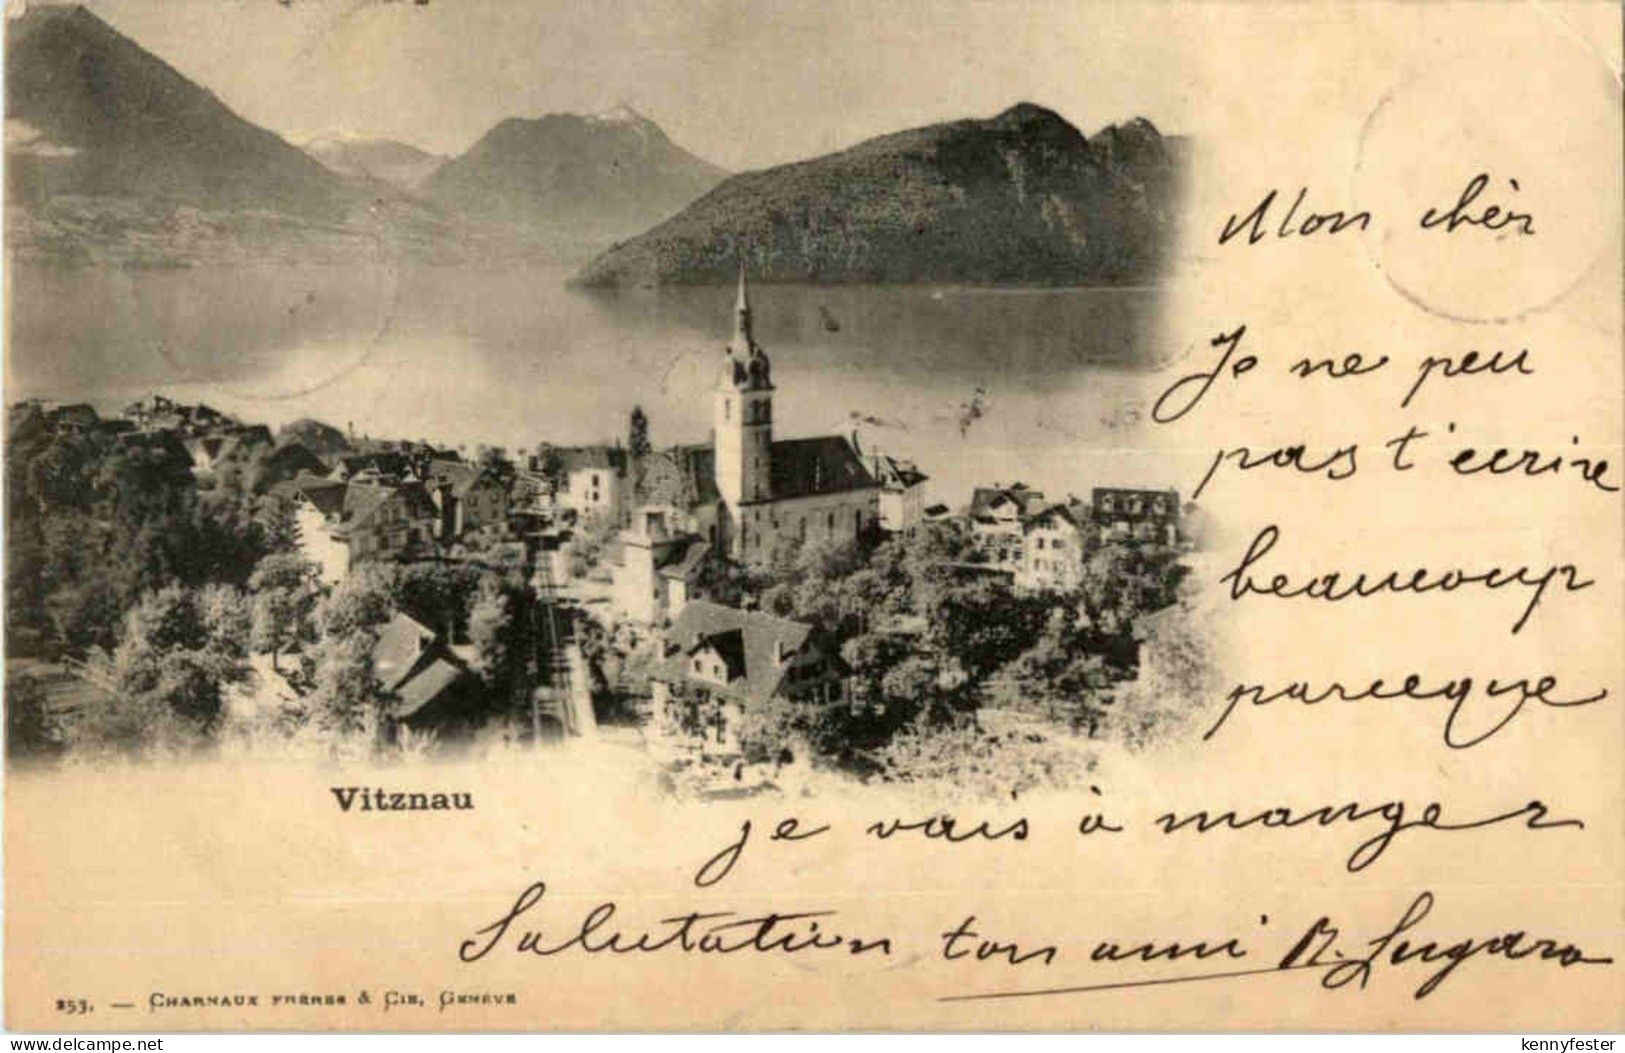 Mon chèr
Je ne peu
pas t'ecrire
beaucoup
parceque
je vais à manger
Salutation ton ami R. Lugaro
Vitznau
253. — CHARNAUX FRÈRES & CIE, GENÈVE
delcampe.net
kennyfester